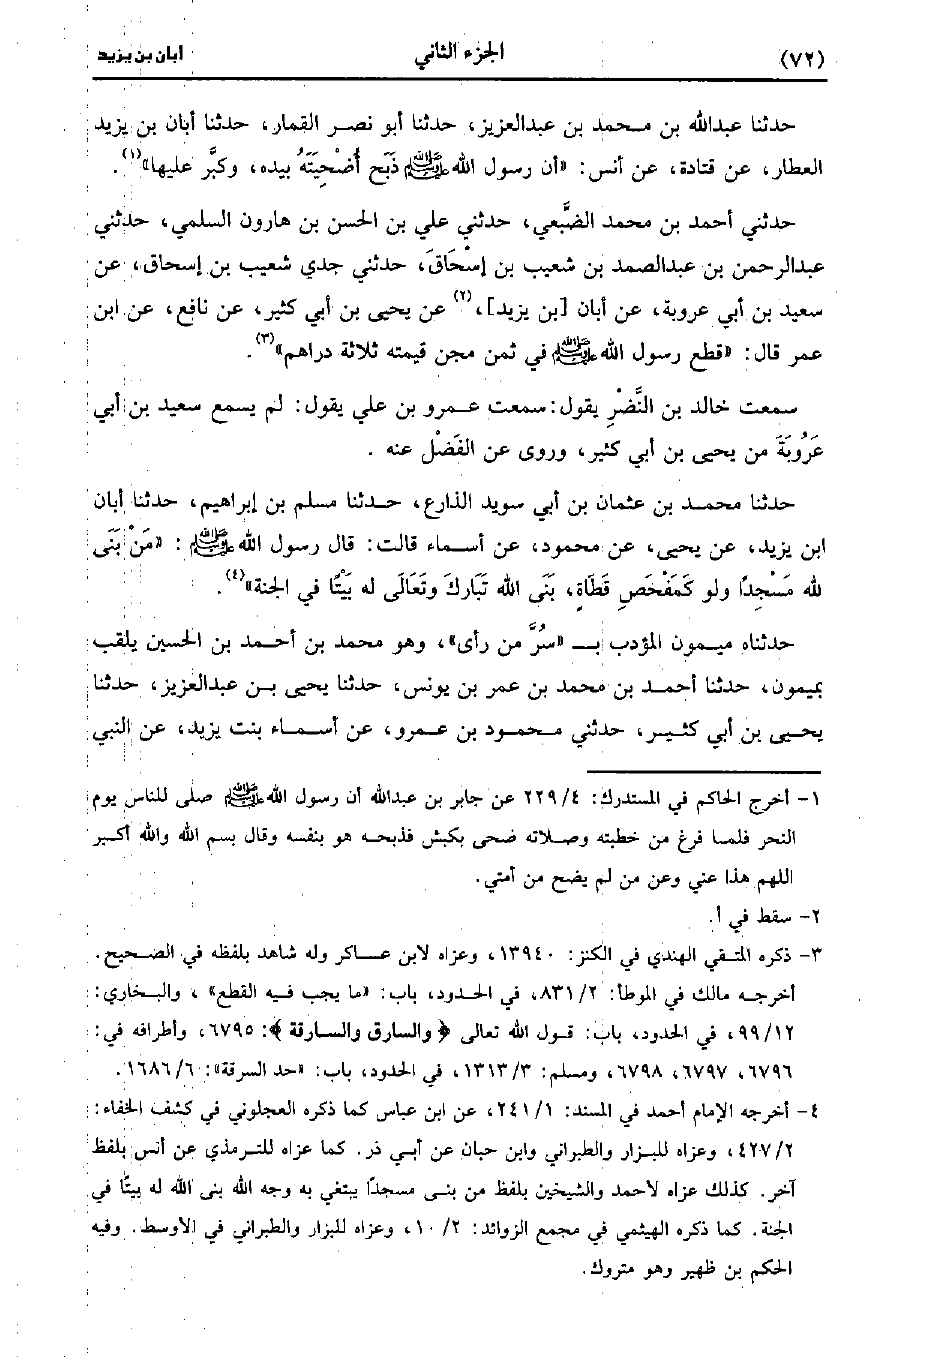 (٧٢) الجزء الثاني أبان بن يزيد
حدثنا عبدالله بن محمد بن عبدالعزيز، حدثنا أبو نصر القمار، حدثنا أبان بن يزيد
العطار، عن قتادة، عن أنس: «أن رسول الله ﷺ ذَبَح أُضْحِيَتَهُ بيده، وكبَّر عليها»(١).
حدثني أحمد بن محمد الضَّبعي، حدثني علي بن الحسن بن هارون السلمي، حدثني
عبدالرحمن بن عبدالصمد بن شعيب بن إسْحَاقَ، حدثني جدي شعيب بن إسحاق، عن
سعيد بن أبي عروبة، عن أبان [بن يزيد]،(٢) عن يحيى بن أبي كثير، عن نافع، عن ابن
عمر قال: «قطع رسول الله ﷺ في ثمن مجن قيمته ثلاثة دراهم»(٣).
سمعت خالد بن النَّضْرِ يقول: سمعت عمرو بن علي يقول: لم يسمع سعيد بن أبي
عَرُوبَةَ من يحيى بن أبي كثير، وروى عن الفَضْل عنه .
حدثنا محمد بن عثمان بن أبي سويد الذارع، حدثنا مسلم بن إبراهيم، حدثنا أبان
ابن يزيد، عن يحيى، عن محمود، عن أسماء قالت: قال رسول الله ﷺ : «مَنْ بَنَى
لله مَسْجِدًا ولو كَمَفْحَصِ قَطَاةٍ، بَنَى الله تَبَارَكَ وتَعَالَى له بَيْتًا في الجنة»(٤).
حدثناه ميمون المؤدب بـ «سُرَّ من رأى»، وهو محمد بن أحمد بن الحسين يلقب
بميمون، حدثنا أحمد بن محمد بن عمر بن يونس، حدثنا يحيى بن عبدالعزيز، حدثنا
يحيى بن أبي كثير، حدثني محمود بن عمرو، عن أسماء بنت يزيد، عن النبي
١- أخرج الحاكم في المستدرك: ٢٢٩/٤ عن جابر بن عبدالله أن رسول الله ﷺ صلى للناس يوم
النحر فلما فرغ من خطبته وصلاته ضحى بكبش فذبحه هو بنفسه وقال بسم الله والله أكبر
اللهم هذا عني وعن من لم يضح من أمتي.
٢- سقط في أ.
٣- ذكره المتقي الهندي في الكنز: ١٣٩٤٠، وعزاه لابن عساكر وله شاهد بلفظه في الصحيح.
أخرجه مالك في الموطأ: ٨٣١/٢، في الحدود، باب: «ما يجب فيه القطع» ، والبخاري:
٩٩/١٢، في الحدود، باب: قول الله تعالى ﴿ والسارق والسارقة ﴾: ٦٧٩٥، وأطرافه في:
٦٧٩٦، ٦٧٩٧، ٦٧٩٨، ومسلم: ١٣١٣/٣، في الحدود، باب: «حد السرقة»: ١٦٨٦/٦.
٤- أخرجه الإمام أحمد في المسند: ٢٤١/١، عن ابن عباس كما ذكره العجلوني في كشف الخفاء:
٤٢٧/٢، وعزاه للبزار والطبراني وابن حبان عن أبي ذر. كما عزاه للترمذي عن أنس بلفظ
آخر. كذلك عزاه لاحمد والشيخين بلفظ من بنى مسجدًا يبتغي به وجه الله بنى الله له بيتًا في
الجنة. كما ذكره الهيثمي في مجمع الزوائد: ١٠/٢، وعزاه للبزار والطبراني في الأوسط. وفيه
الحكم بن ظهير وهو متروك.